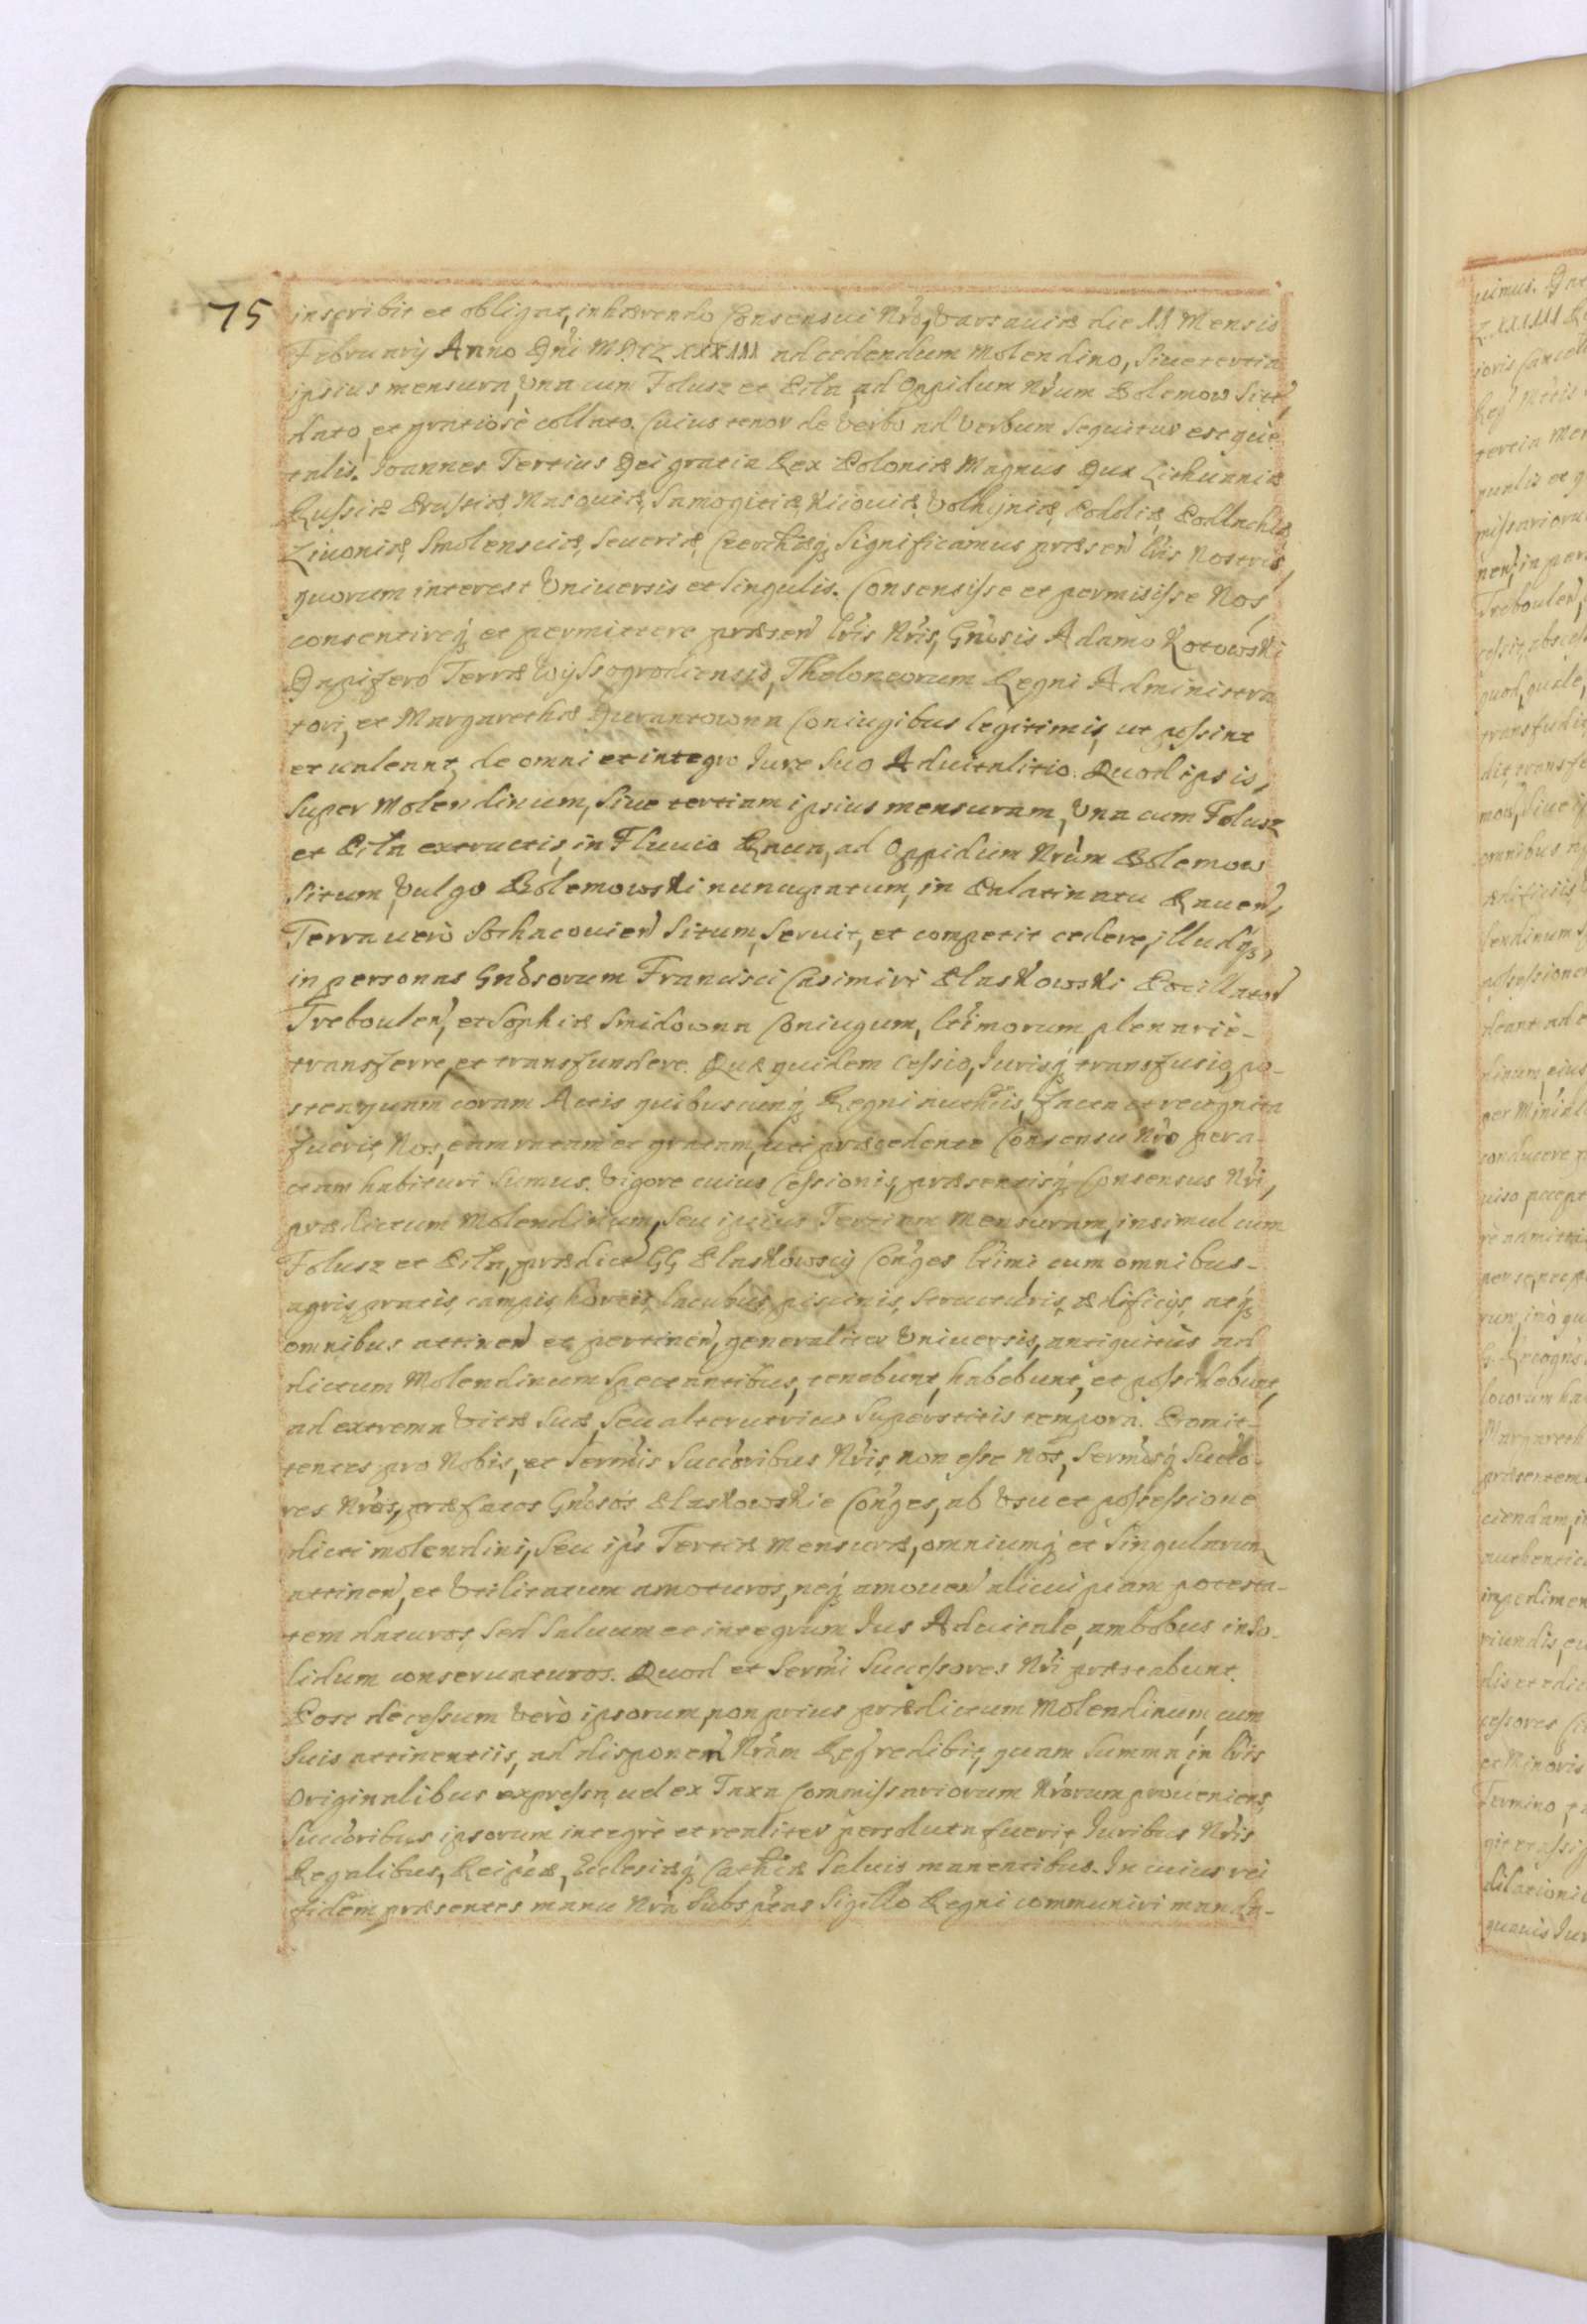 75
inscribit et obligat, inhærendo Consensui Nr̃o, Varsauiæ die 11 Mensis
Februarij Anno Dñi MDCLXXXIII ad cedendum Molendino, siue tertia
ipsius mensura, Vna cum Folusz et Piła, ad Oppidum Nr̃um Bolemow Sito,
dato, et gratiosè collato. Cuius tenor de Verbo ad Verbum Sequitur estque
talis. Joannes Tertius Dei gratia Rex Poloniæ Magnus Dux Lithuaniæ
Russiæ Prussiæ, Masouiæ, Samogitiæ, Kiiouiæ, Volhyniæ, Podoliæ, Podlachiæ,
Liuoniæ, Smolensciæ, Seueriæ, Czerhiæq́; Significamus præsen̄ Lr̃is Nostris,
quorum interest Vniuersis et Singulis. Consensisse et permisisse Nos,
consentireq́; et permittere præsen̄ lr̃is Nr̃is, Gñosis Adamo Kotowski
Dapifero Terræ Wyssogrodiensis, Theloneorum Regni Administra
tori, et Margarethæ Durantowna Coniugibus legitimis, ut possint
et ualeant, de omni et integro Jure Suo Aduitalitio. Quod ipsis,
Super Molendinum, Siue tertiam ipsius mensuram, Vna cum Folusz
et Piła extructis, in Fluuio Raua, ad Oppidum Nr̃um Bolemow
Situm, Vulgo Bolemowski nuncupatum, in Palatinatu Rauen̄,
Terra uerò Sochacouien̄ Situm, Seruit, et competit cedere, illudq́;,
in personas Gñosorum Francisci Casimiri Błaskowski Pocillator̄
Treboulen̄, et Sophiæ Smidowna Coniugum, lt̃imorum, plenariè-
transferre, et transfundere. Quæ quidem Cessio, Jurisq́; transfusio, po-
steaquam coram Actis quibuscunq́; Regni authc̃is, facta et recognita
fuerit, Nos, eam ratam et gratam, uti præcedente Consensu Nr̃o pera-
ctam habituri Sumus. Vigore cuius Cessionis, præsentisq́; Consensus Nr̃i,
prædictum Molendinum, Seu ipsius Tertiam Mensuram, insimul cum
Folusz et Piła, prædict̄ GG Błaskowscij Coñges lt̃imi, cum omnibus-
agris, pratis, campis, hortis, lacubus, piscinis, Structuris, ædificijs, atq́;
omnibus attinen̄ et pertinen̄, generaliter Vniuersis, antiquitùs ad
dictum Molendinum Spectantibus, tenebunt, habebunt, et possidebunt,
ad extrema Vitæ Suæ, Seu alterutrius Superstitis tempora. Promit-
tentes pro Nobis, et Serm̃is Succ̃oribus Nr̃is, non esse Nos, Serm̃osq́; Succo-
res Nr̃os, præfatos Gñosos Błaskowskie Coñges, ab Vsu et possessione
dicti molendini, Seu ips̃ Tertiæ Mensuræ, omniumq́; et Singularum
attinen̄, et Vtilitatum amoturos, neq́; amouen̄ alicuipiam potesta-
tem daturos, Sed Saluum et integrum Jus Aduitale, ambobus in So-
lidum conseruaturos. Quod et Serm̃i Successores Nr̃i præstabunt.
Post decessum Verò ipsorum, non prius prædictum Molendinum, cum
Suis attinentiis, ad disponen̄ Nr̃am Reg̃ redibit, quam Summa, in lr̃is
Originalibus expressa, uel ex Taxa Commissariorum Nr̃orum proueniens,
Succ̃oribus ipsorum integrè et realiter persoluta fuerit, Juribus Nr̃is
Regalibus, Reip̃cæ, Ecclesiæq́; Cathc̃æ Saluis manentibus. In cuius rei
fidem præsentes manu Nr̃a Subsc̃ptas Sigillo Regni communiri manda-